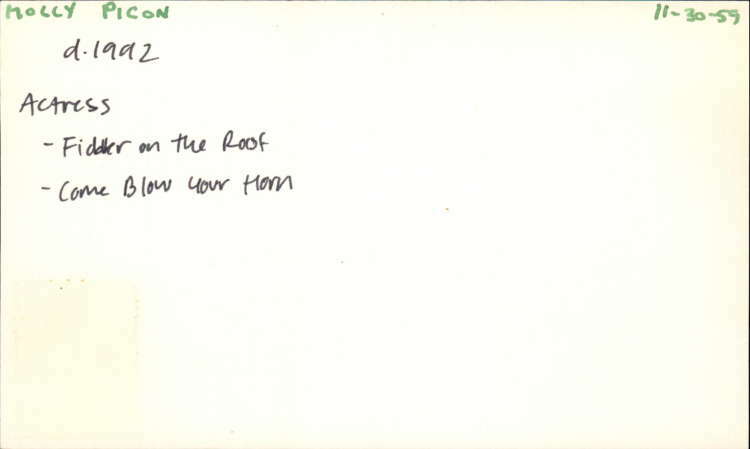 MOLLY PICON 11-30-59
d.1992
Actress
- Fiddler on the Roof
- Come Blow Your Horn